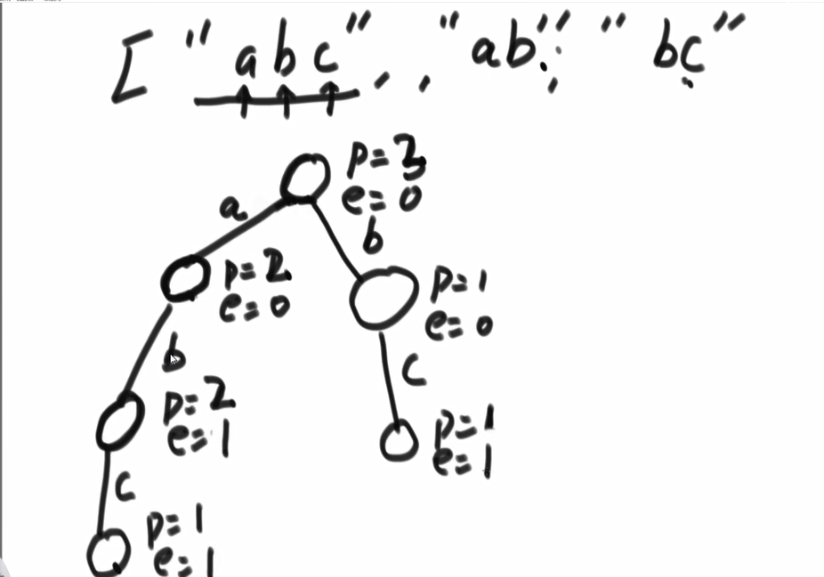 ["abc", , "ab"; "bc"
p=3
e=0
a
b
p=2
e=0
p=1
e=0
b
c
p=2
e=1
p=1
e=1
c
p=1
e=1